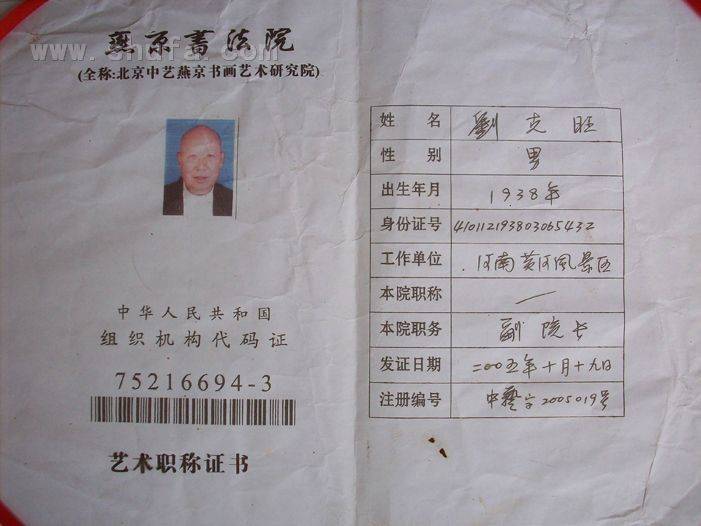 燕京書法院
www.shufa.com
(全称:北京中艺燕京书画艺术研究院)
中华人民共和国
组织机构代码证
75216694-3
艺术职称证书
姓 名 劉克旺
性 别 男
出生年月 1938年
身份证号 410112193803065432
工作单位 河南黄河风景区
本院职称 一
本院职务 副院长
发证日期 二00五年十月十九日
注册编号 中藝字2005019号